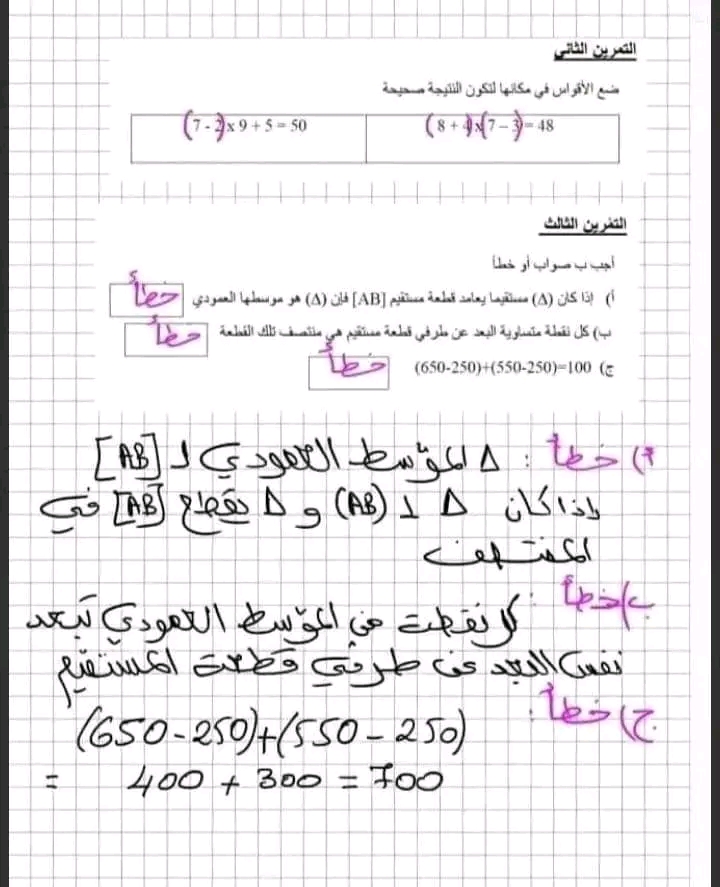 التمرين الثاني
ضع الأقواس في مكانها لتكون النتيجة صحيحة
(7 - 2) x 9 + 5 = 50
(8 + 4)x(7 – 3) = 48
التمرين الثالث
أجب ب صواب أو خطأ
أ) إذا كان (Δ) مستقيما يعامد قطعة مستقيم [AB] فإن (Δ) هو موسطها العمودي خطأ
ب) كل نقطة متساوية البعد عن طرفي قطعة مستقيم هي منتصف تلك القطعة خطأ
ج) (650-250)+(550-250)=100 خطأ
أ) خطأ : Δ المؤسط العمودي لـ [AB]
إذا كان Δ ⊥ (AB) و Δ يقطع [AB] في
المنتصف
ب) خطأ : كل نقطة من المؤسط العمودي تبعد
نفس البعد عن طرفي قطعة المستقيم
ج) خطأ :
(650-250)+(550-250)
= 400 + 300 = 700